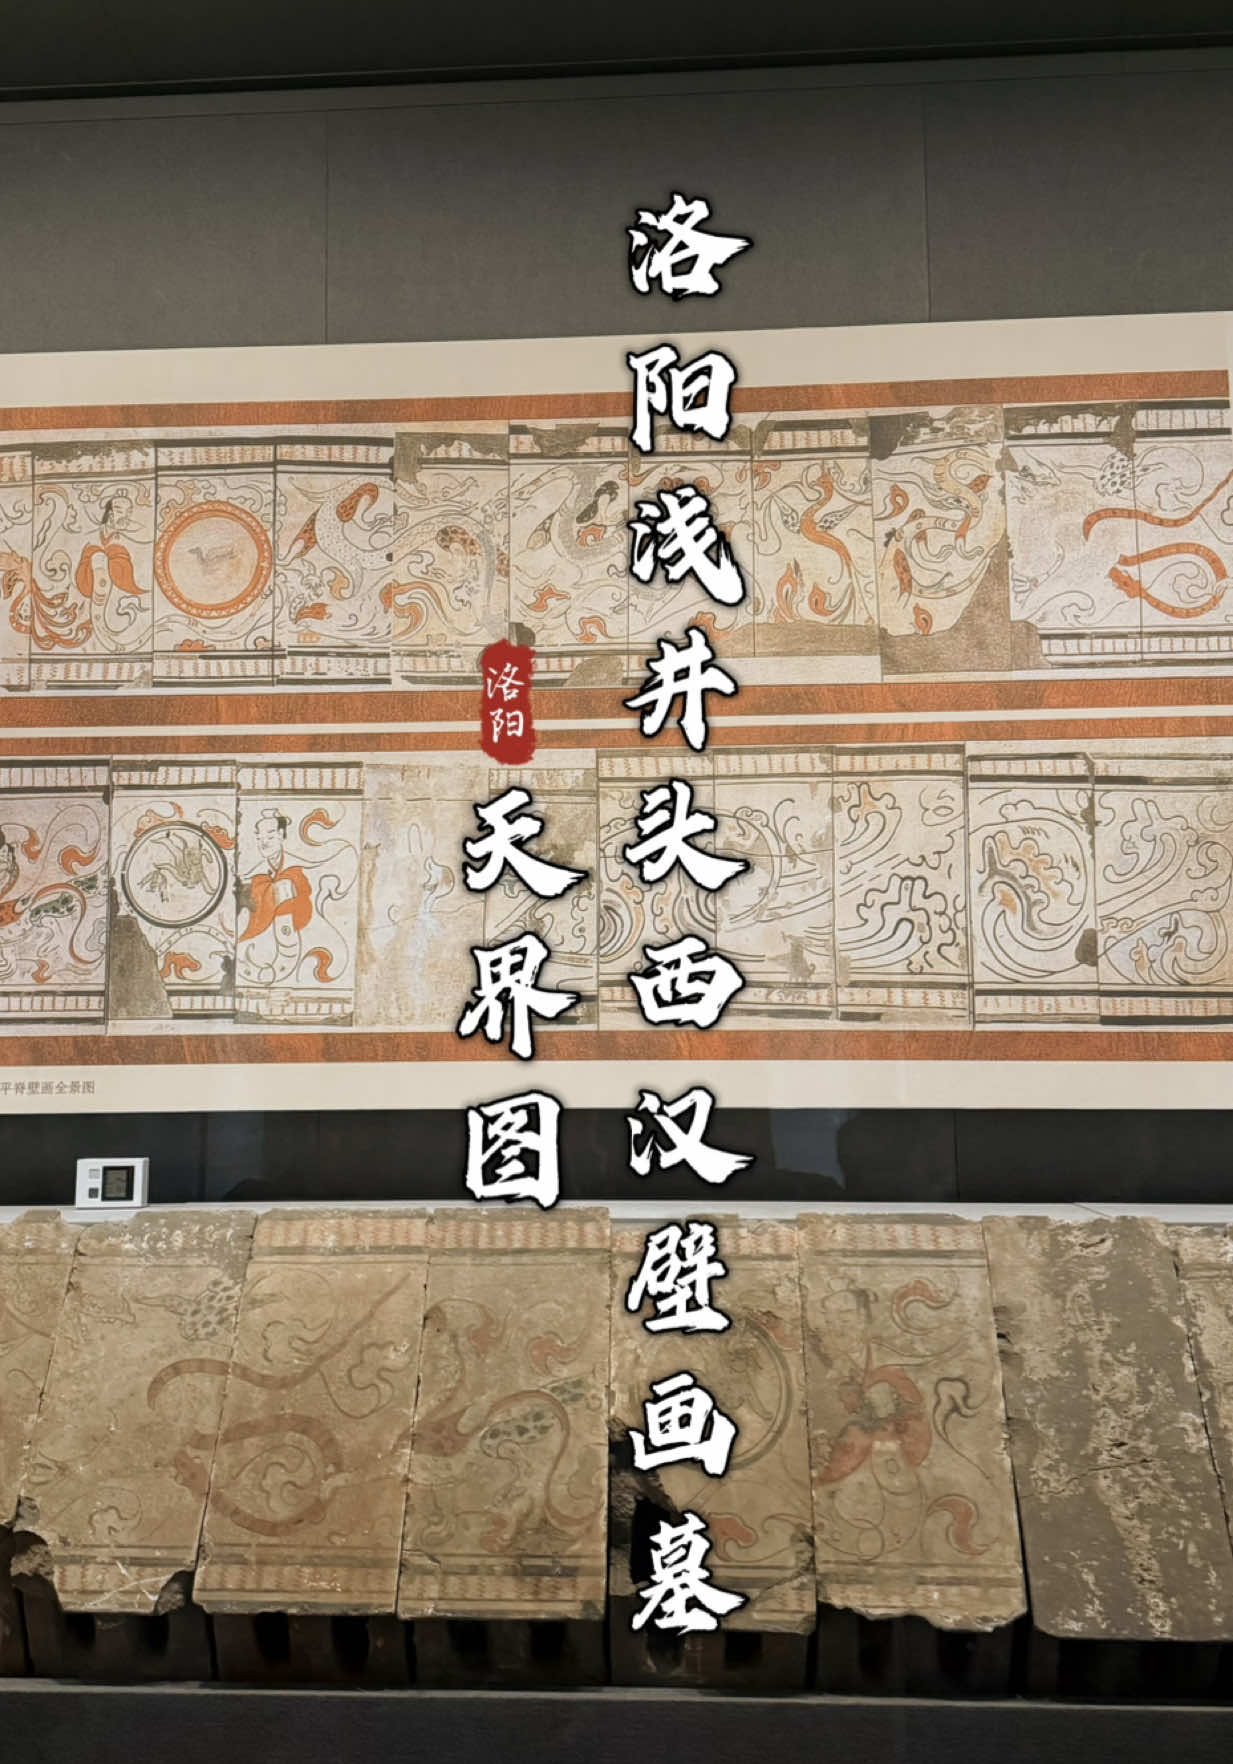 洛阳浅井头西汉壁画墓
洛阳
天界图
平脊壁画全景图